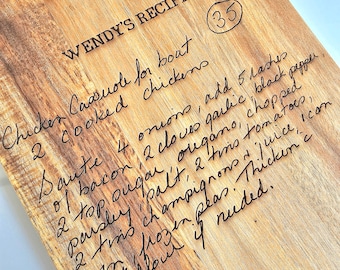 WENDY'S RECIP
35
Chicken Casserole for bout
2 cooked chickens
Saute 4 onions, add 5 rashes
of bacon, 2 cloves garlic black pepper
2 tsp sugar oregano, chopped
parsley, salt, 2 tins tomatoes,
2 tins champignons & juice, 1 can
frozen peas. Thicken c
flour if needed.